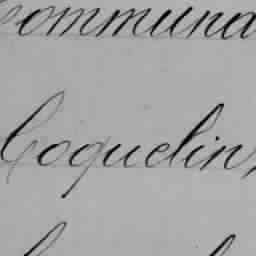 Communa
Coquelin,